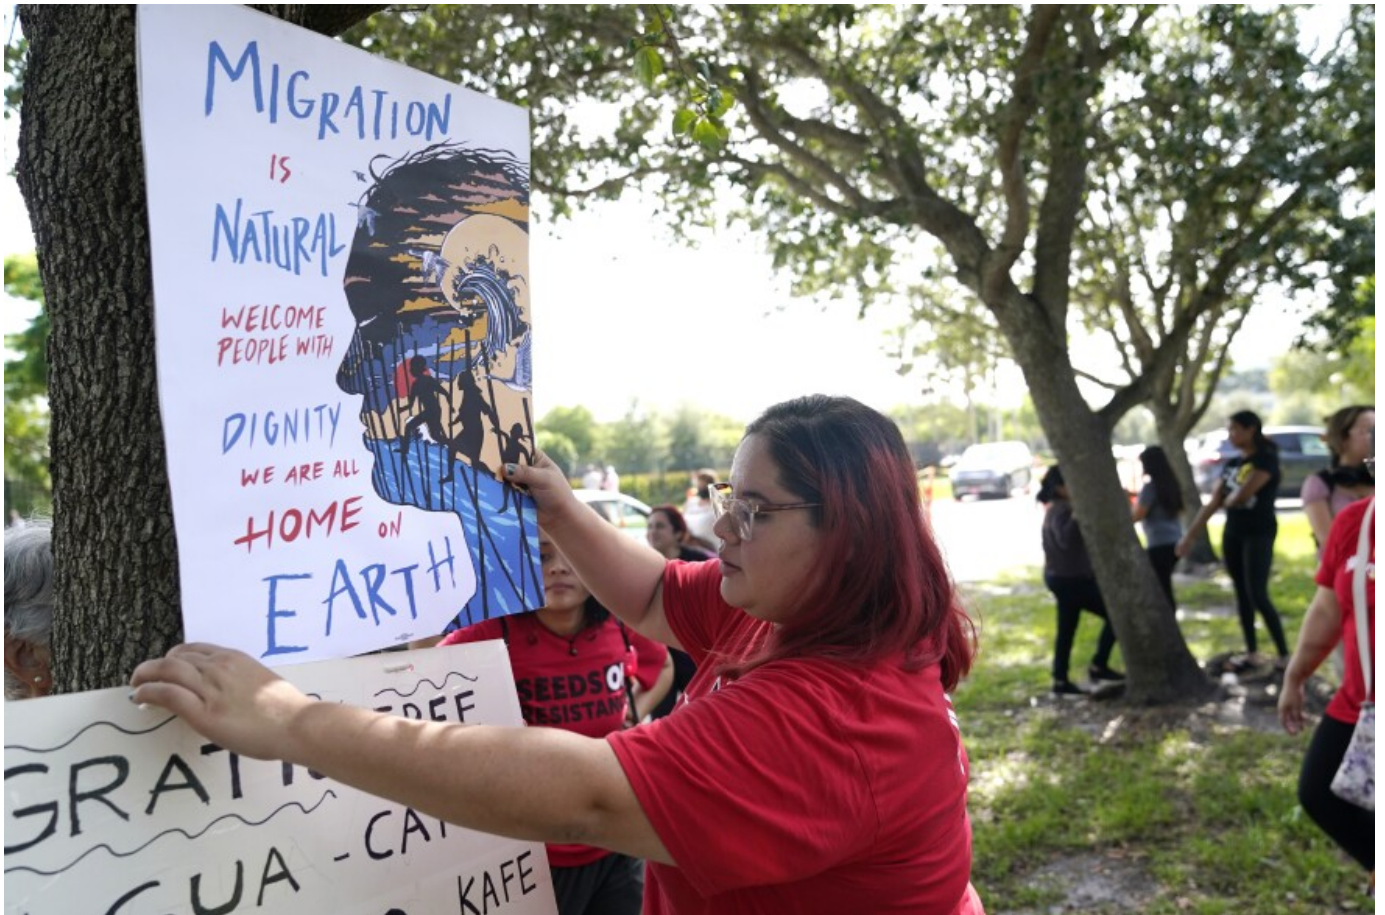 MIGRATION
IS
NATURAL
WELCOME
PEOPLE WITH
DIGNITY
WE ARE ALL
HOME ON
EARTH
SEEDS
FREE
GUA - CA
KAFE